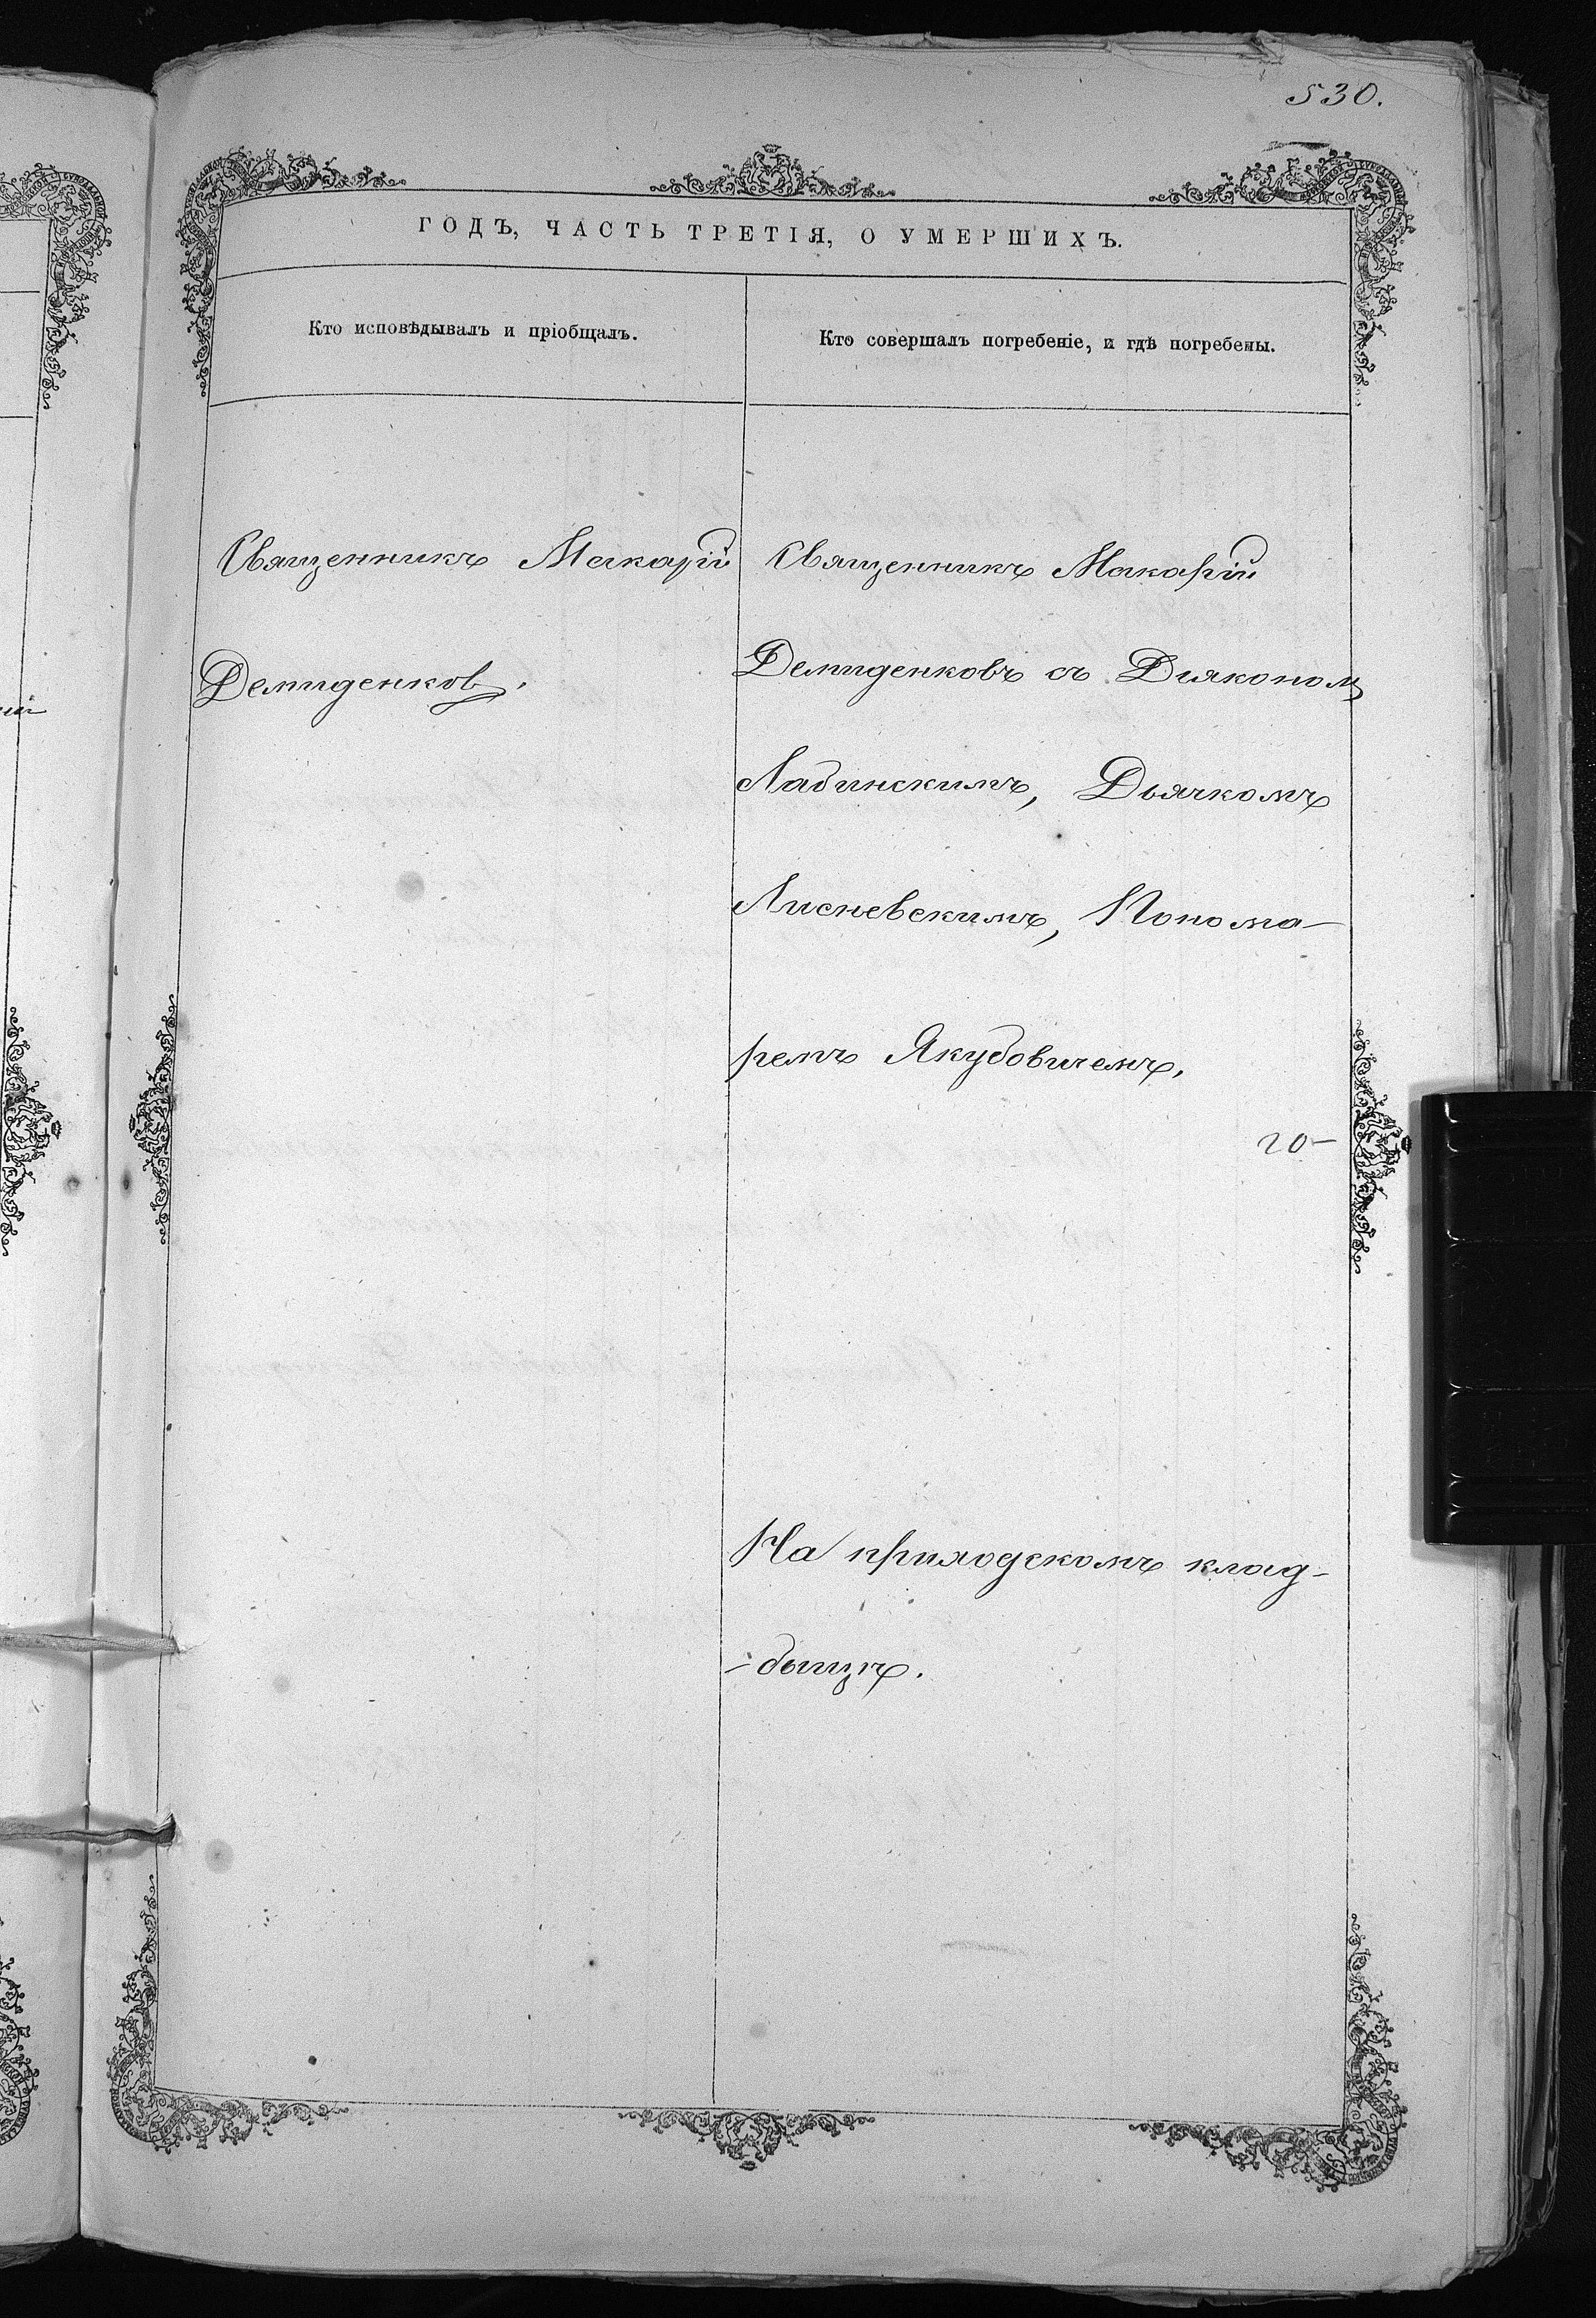 530.
ГОДЪ, ЧАСТЬ ТРЕТІЯ, О УМЕРШИХЪ.
Кто исповѣдывалъ и пріобщалъ.
Священникъ Макарій
Демиденковъ.
Кто совершалъ погребеніе, и гдѣ погребены.
Священникъ Макарій
Демиденковъ съ Діакономъ
Лабинскимъ, Дьячкомъ
Лисневскимъ, Понома-
ремъ Якубовичемъ,
20-
На приходскомъ клад-
-бищѣ.